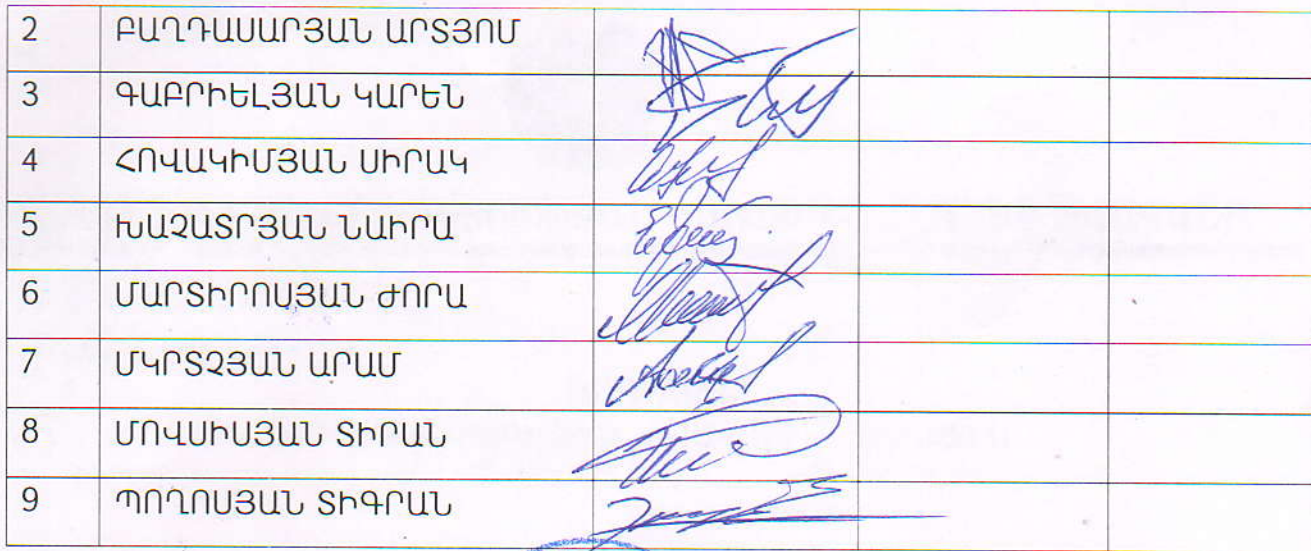 2 ԲԱՂԴԱՍԱՐՅԱՆ ԱՐՏՅՈՄ
3 ԳԱԲՐԻԵԼՅԱՆ ԿԱՐԵՆ
4 ՀՈՎԱԿԻՄՅԱՆ ՍԻՐԱԿ
5 ԽԱՉԱՏՐՅԱՆ ՆԱԻՐԱ
6 ՄԱՐՏԻՐՈՍՅԱՆ ԺՈՐԱ
7 ՄԿՐՏՉՅԱՆ ԱՐԱՄ
8 ՄՈՎՍԻՍՅԱՆ ՏԻՐԱՆ
9 ՊՈՂՈՍՅԱՆ ՏԻԳՐԱՆ